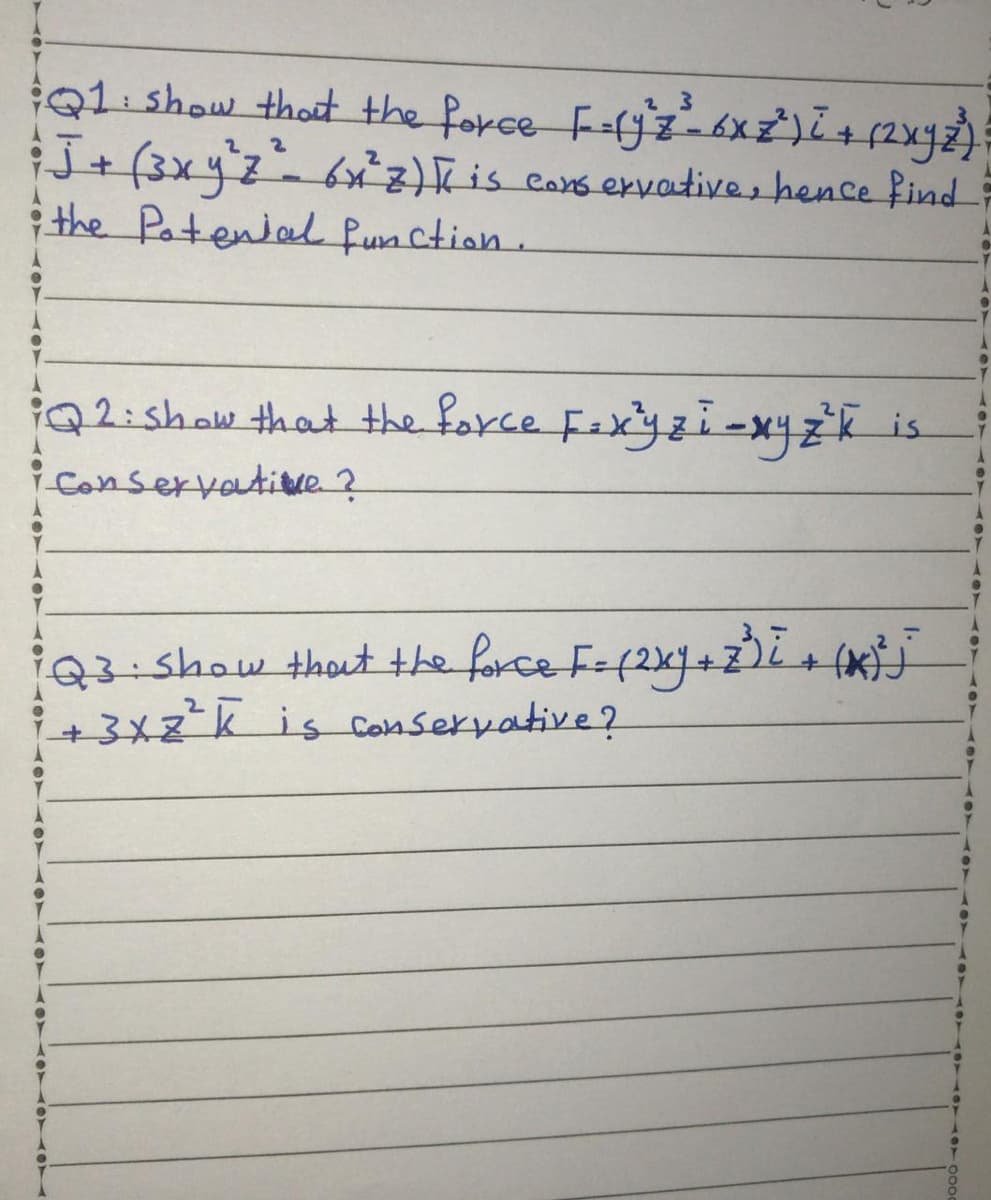 Q1: show that the force F=(y²z³-6xz²)i̅ + (2xyz³)
j̅ + (3xy²z² - 6x²z)k̅ is conservative, hence find
the Potenial function.
Q2: show that the force F=x²yz i̅ -xyz²k̅ is
Conservative?
Q3: show that the force F=(2xy+z³)i̅ + (x)²j̅
+3xz²k̅ is Conservative?